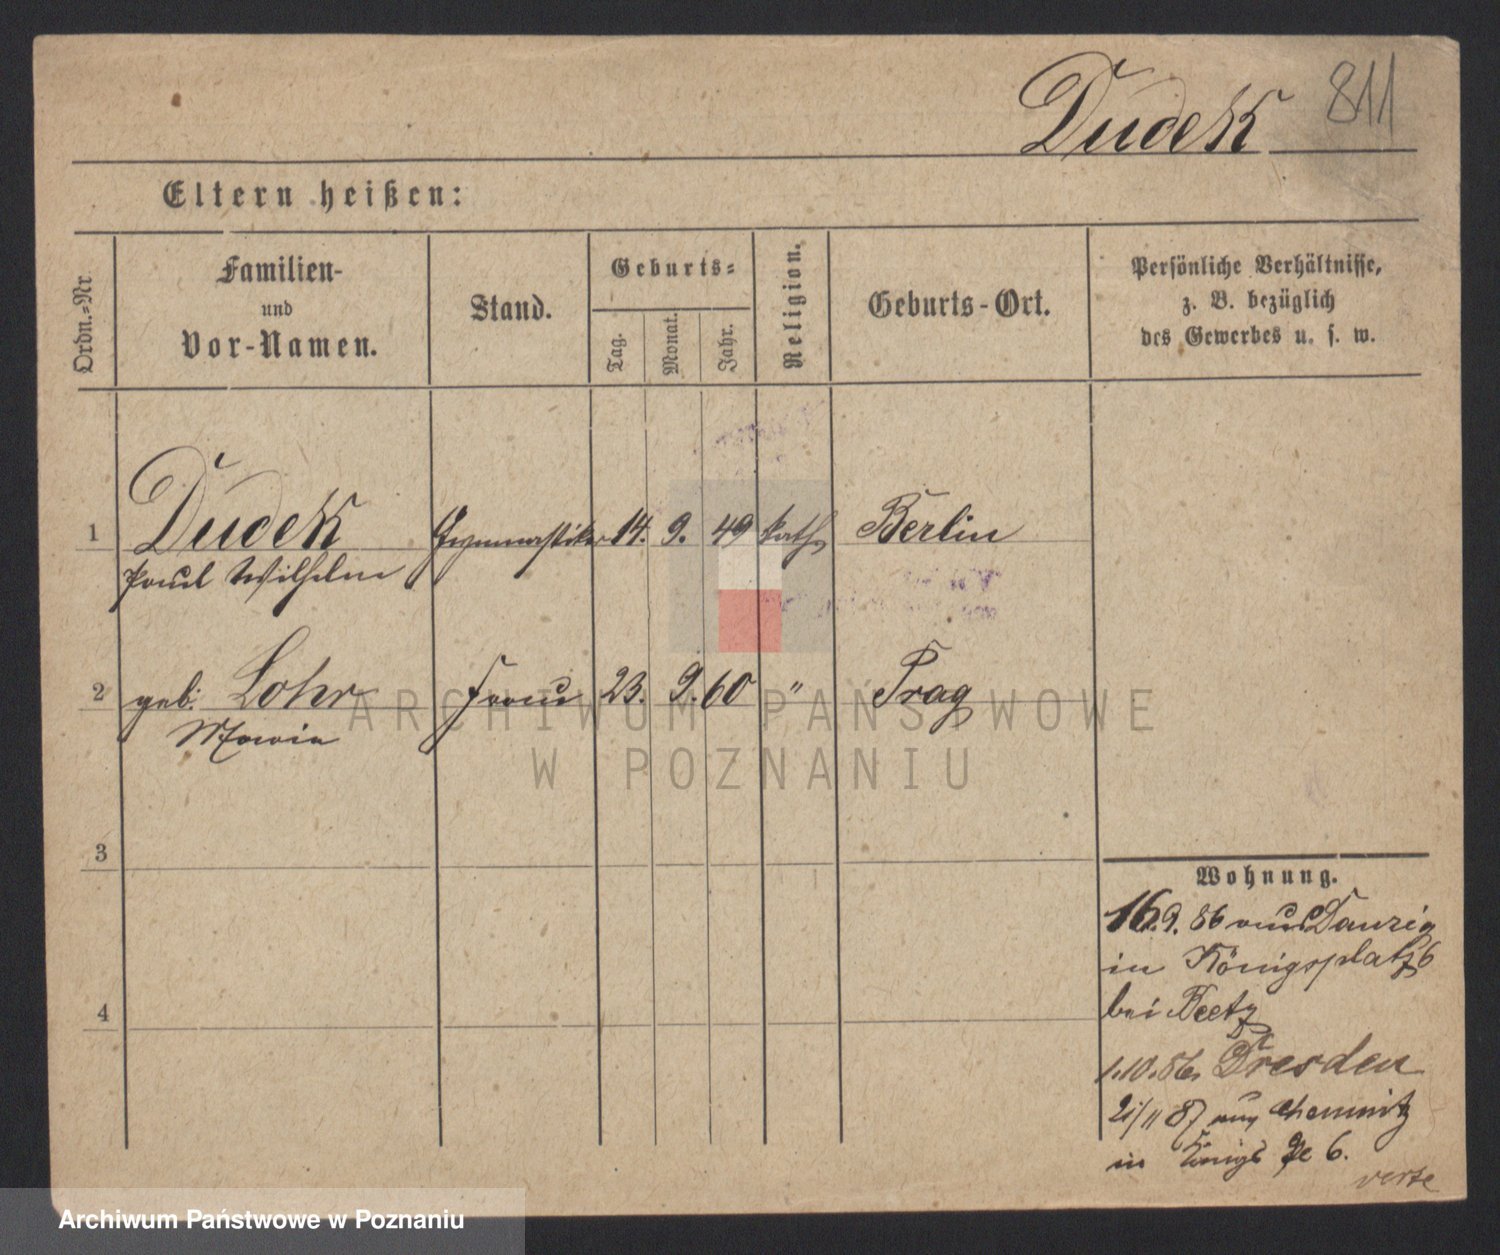 Dudek 811
Eltern heißen:
Ordn.-Nr
Familien-
und
Vor-Namen.
Stand.
Geburts-
Tag.
Monat.
Jahr.
Religion.
Geburts-Ort.
Persönliche Verhältnisse,
z. B. bezüglich
des Gewerbes u. s. w.
1 Dudek Gymnastiker 14. 9. 49 kath. Berlin
Paul Wilhelm
2 geb. Lohr Frau 23. 9. 60 " Prag
Maria
ARCHIWUM PAŃSTWOWE
W POZNANIU
3
4
Wohnung.
16.9.86 aus Danzig
in Königsplatz 6
bei Beetz
1.10.86. Dresden
21/11 87 aus Chemnitz
in Königs Pl 6.
verte
Archiwum Państwowe w Poznaniu